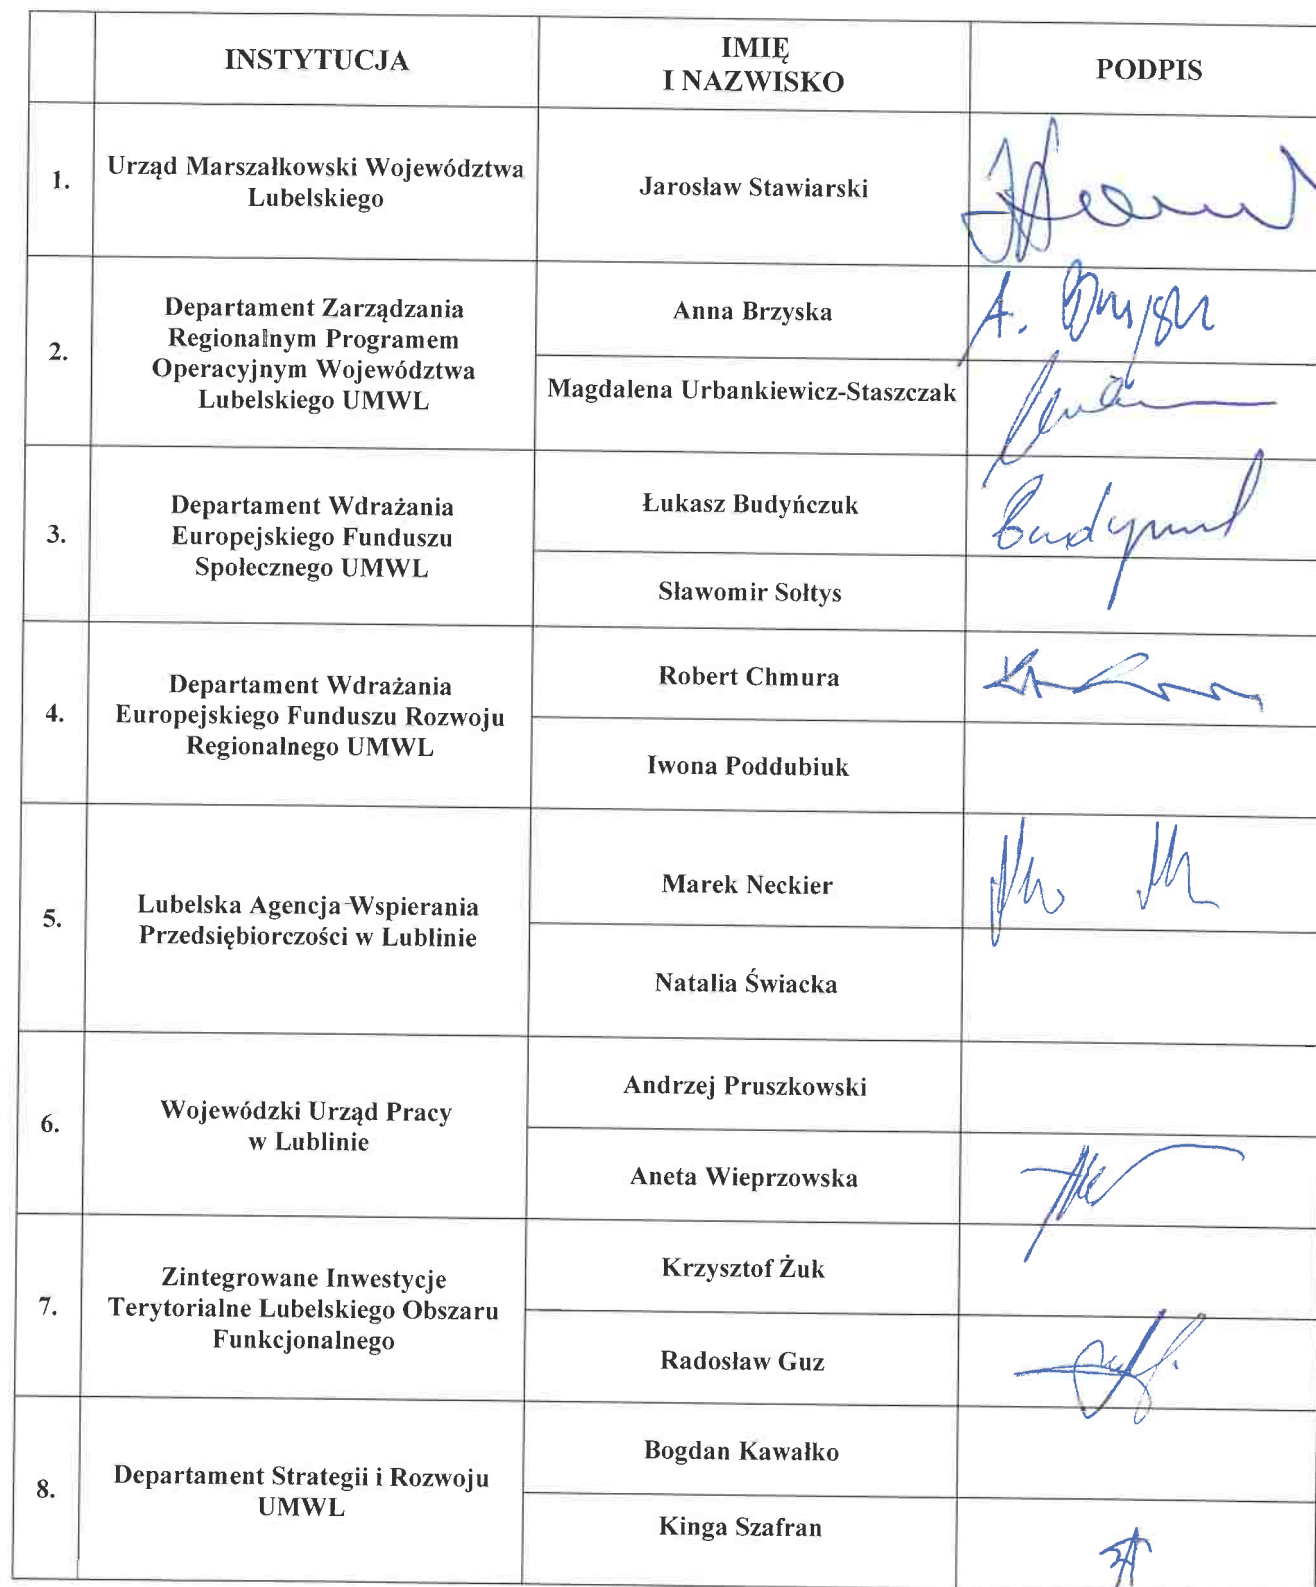 INSTYTUCJA
IMIĘ
I NAZWISKO
PODPIS
1.
Urząd Marszałkowski Województwa
Lubelskiego
Jarosław Stawiarski
2.
Departament Zarządzania
Regionalnym Programem
Operacyjnym Województwa
Lubelskiego UMWL
Anna Brzyska
A.
Magdalena Urbankiewicz-Staszczak
3.
Departament Wdrażania
Europejskiego Funduszu
Społecznego UMWL
Łukasz Budyńczuk
Sławomir Sołtys
4.
Departament Wdrażania
Europejskiego Funduszu Rozwoju
Regionalnego UMWL
Robert Chmura
Iwona Poddubiuk
5.
Lubelska Agencja Wspierania
Przedsiębiorczości w Lublinie
Marek Neckier
Natalia Świacka
6.
Wojewódzki Urząd Pracy
w Lublinie
Andrzej Pruszkowski
Aneta Wieprzowska
7.
Zintegrowane Inwestycje
Terytorialne Lubelskiego Obszaru
Funkcjonalnego
Krzysztof Żuk
Radosław Guz
8.
Departament Strategii i Rozwoju
UMWL
Bogdan Kawałko
Kinga Szafran